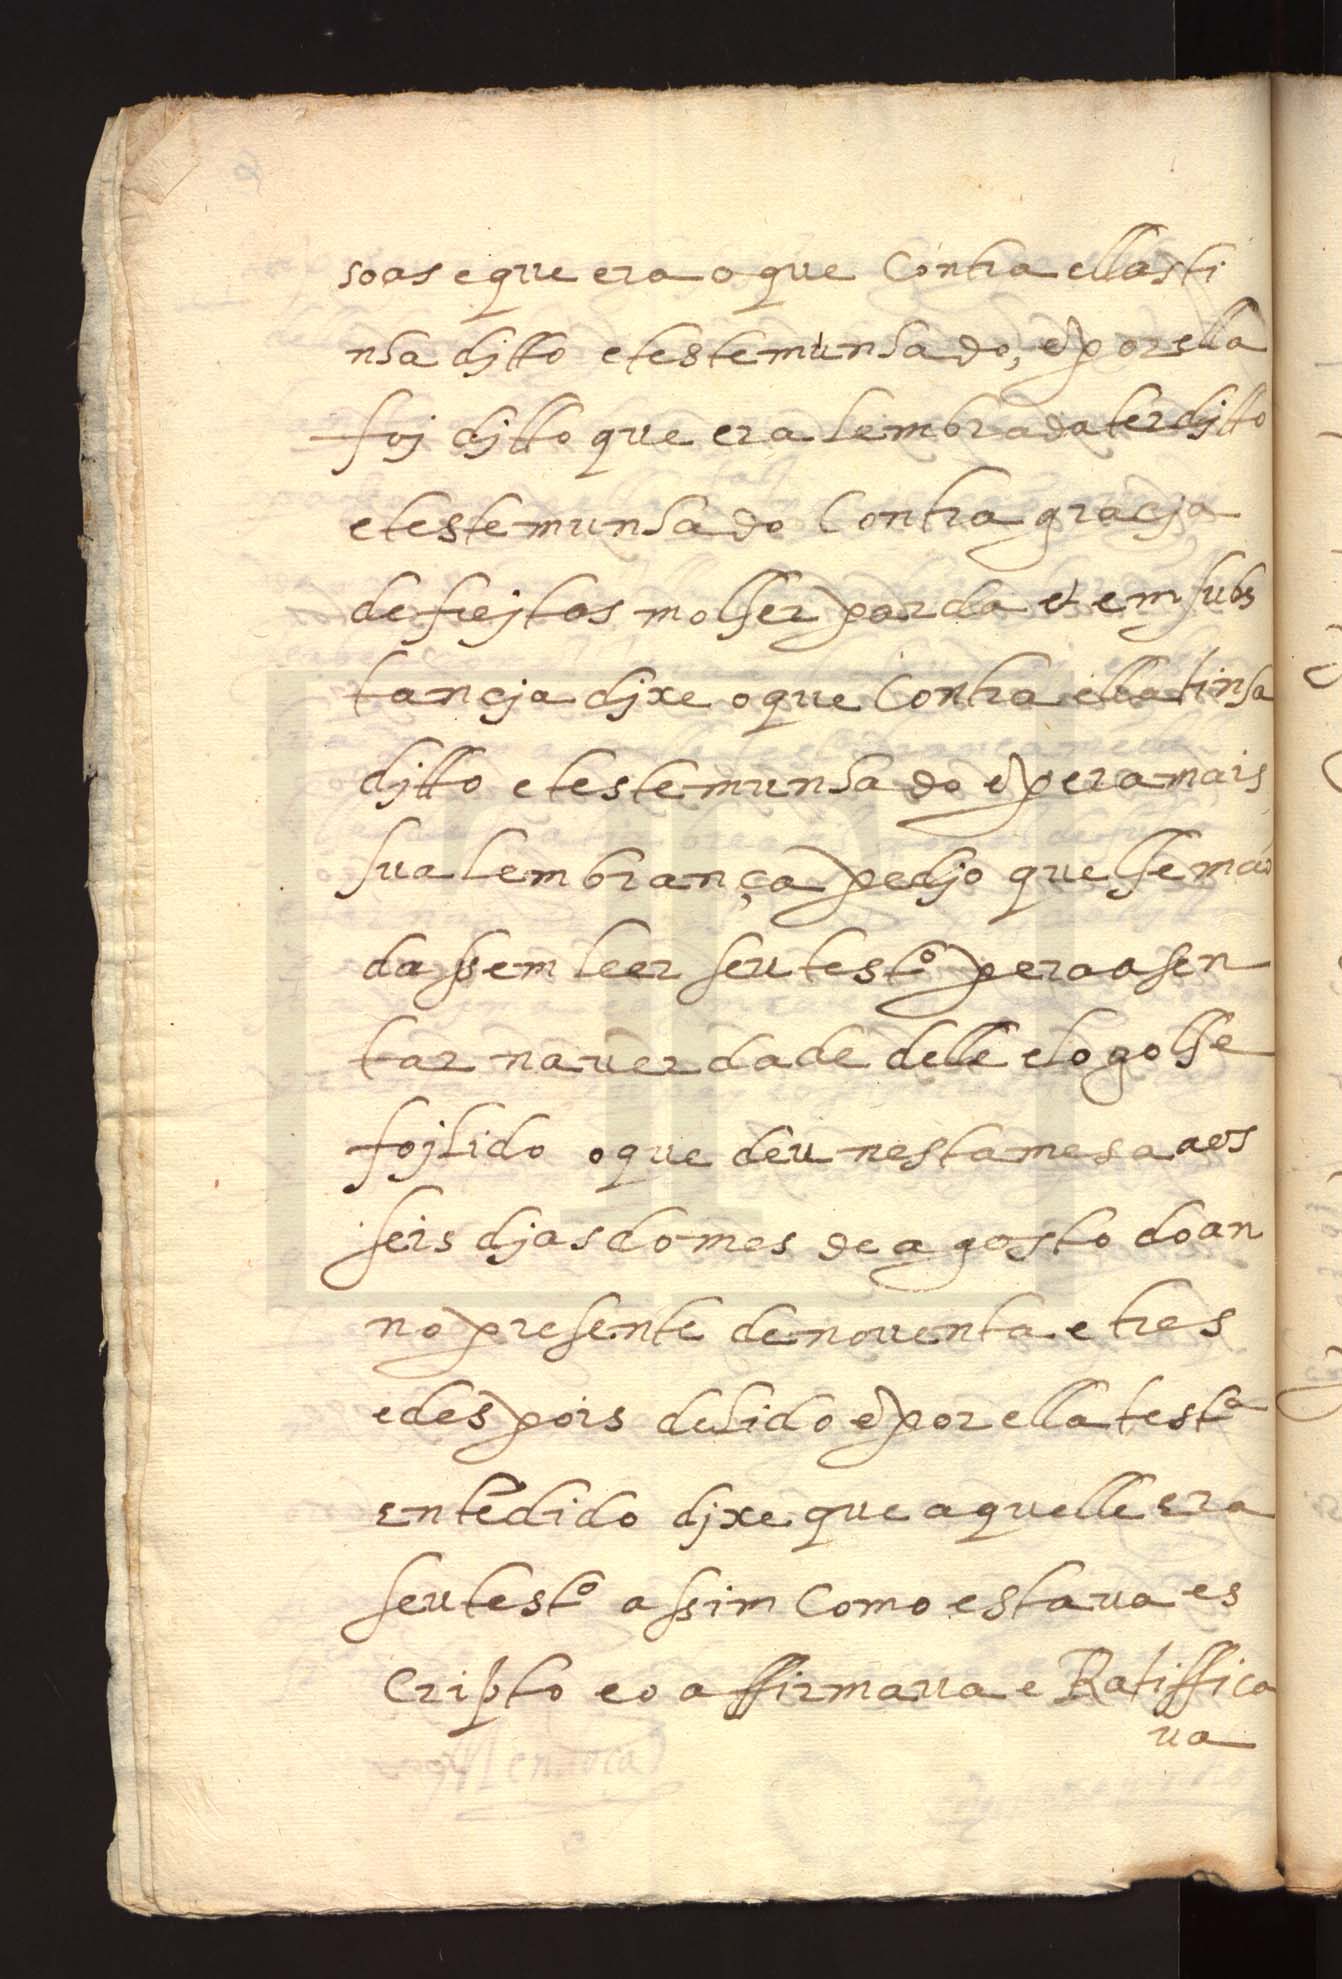 soas e que era o que Contra ellas ti
nha djtto e testemunhado, e por ella
foj djtto que era lembrada ter djtto
e testemunhado Contra gracja
de frejtas molher parda e em subs
tancja djxe o que Contra ella tinha
djtto e testemunhado e pera mais
sua lembrança pedjo que lhe mã
dassem leer seu testº pera asen
tar na verdade delle e logo lhe
foj lido o que deu nesta mesa aos
seis djas do mes de agosto do an
no presente de noventa e tres
e despois de lido e por ella testª
entẽdido djxe que aquelle era
seu testº assim Como estava es
Cripto e o affirmava e Ratiffica
va